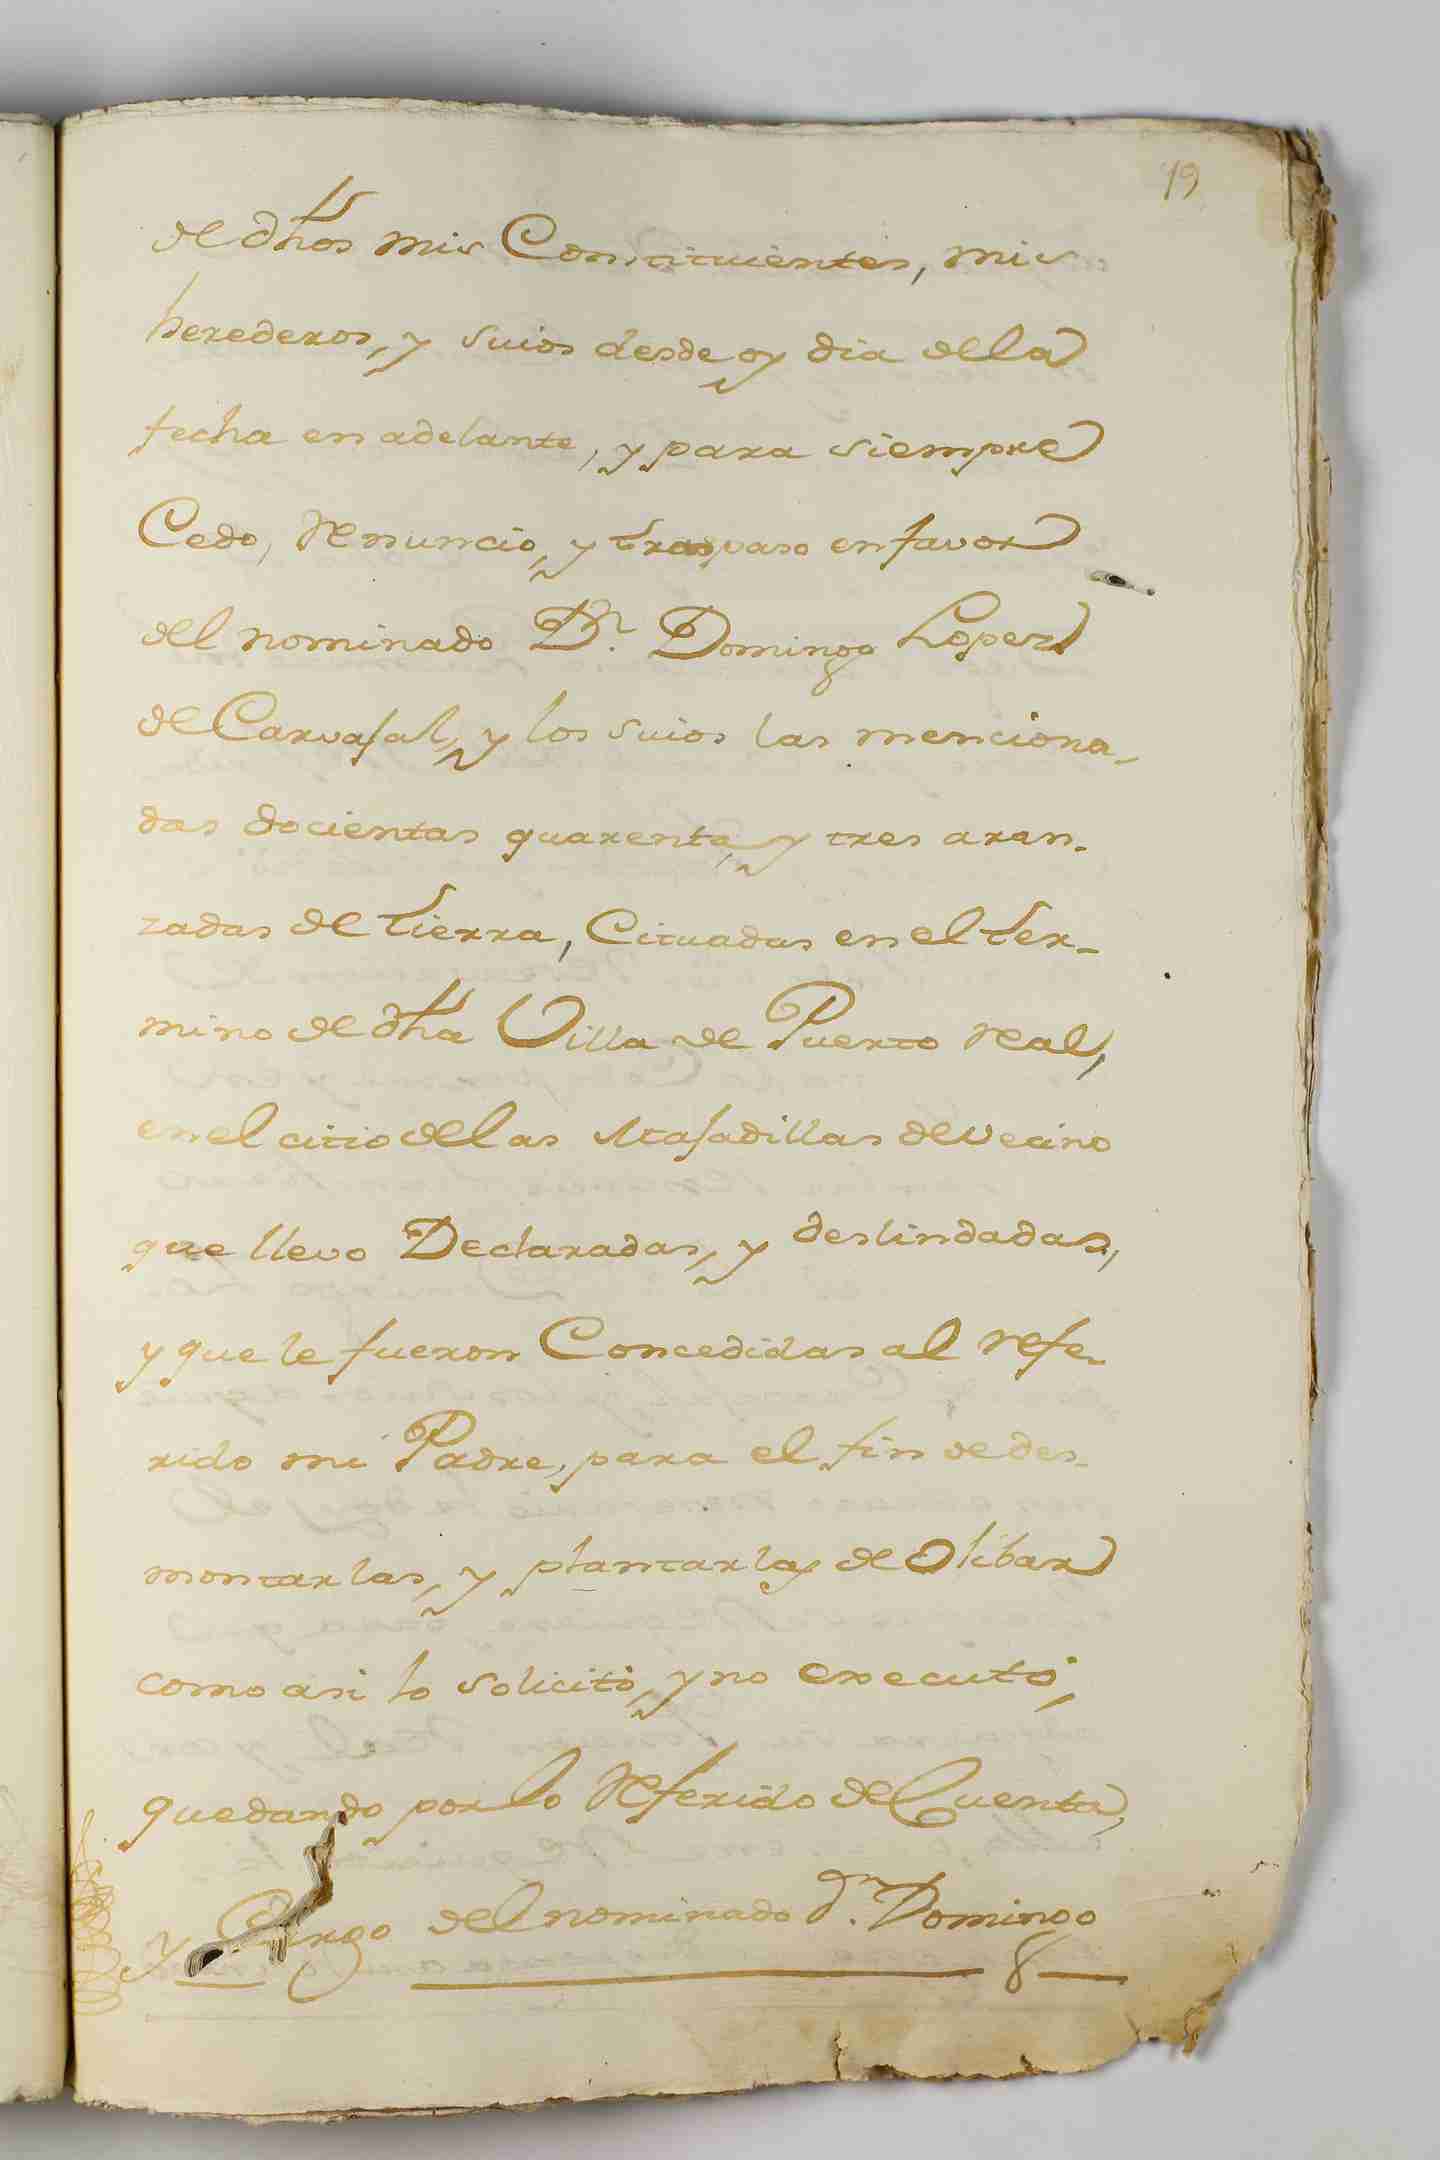 19
de dhos mis Constituientes, mis
herederos, y suios desde oy dia de la
fecha en adelante, y para siempre
Cedo, Renuncio, y traspaso en favor
del nominado Dn. Domingo Lopez
de Carvajal, y los suios las menciona-
das docientas quarenta, y tres aran-
zadas de tierra, Cituadas en el ter-
mino de dha Villa de Puerto Real,
en el citio de las Majadillas de Vecino
que llevo Declaradas, y deslindadas,
y que le fueron Concedidas al refe-
rido mi Padre, para el fin de des-
montarlas, y plantarlas de Olibar
como asi lo solicitó, y no executó,
quedando por lo Referido de Cuenta,
y Cargo del nominado dn. Domingo